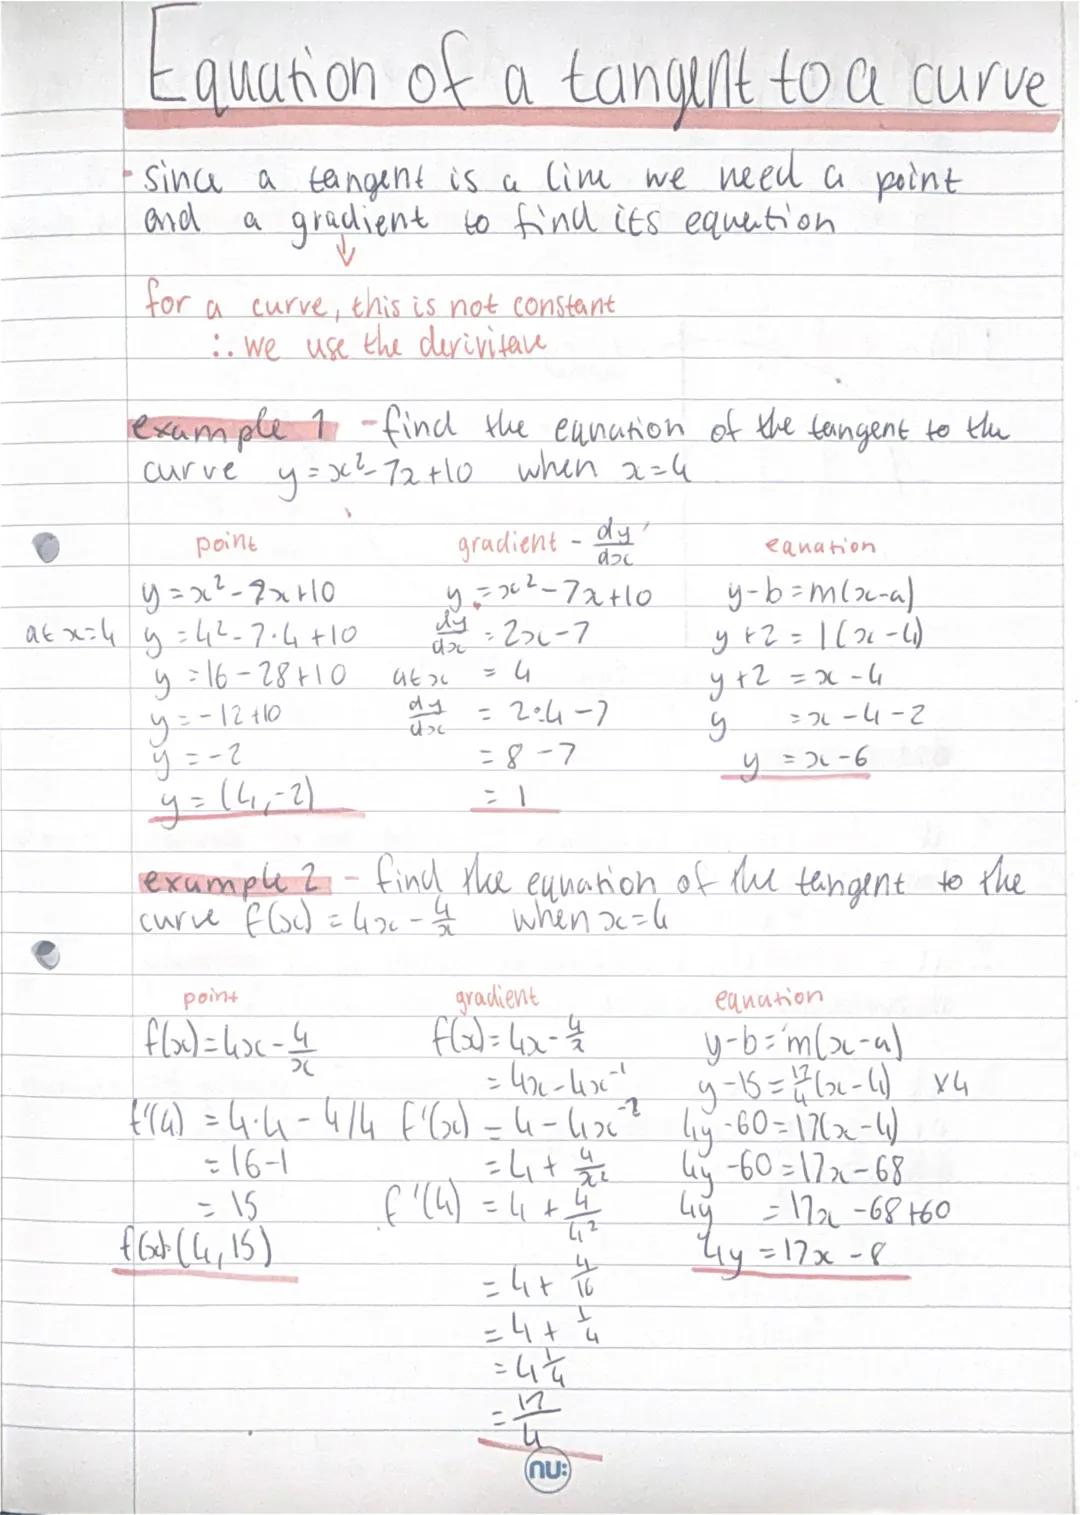 Equation of a tangent to a curve
- since a tangent is a line we need a point
and a gradient to find its equation
↓
for a curve, this is not constant
∴ we use the derivitave
example 1 - find the equation of the tangent to the
curve y = x² - 7x + 10 when x = 4
point gradient - dy/dx equation
y = x² - 7x + 10 y = x² - 7x + 10 y - b = m(x - a)
at x = 4 y = 4² - 7·4 + 10 dy/dx = 2x - 7 y + 2 = 1(x - 4)
y = 16 - 28 + 10 at x = 4 y + 2 = x - 4
y = -12 + 10 dy/dx = 2·4 - 7 y = x - 4 - 2
y = -2 = 8 - 7 y = x - 6
y = (4, -2) = 1
example 2 - find the equation of the tangent to the
curve f(x) = 4x - 4/x when x = 4
point gradient equation
f(x) = 4x - 4/x f(x) = 4x - 4/x y - b = m(x - a)
= 4x - 4x⁻¹ y - 15 = 17/4(x - 4) ×4
f'(4) = 4·4 - 4/4 f'(x) = 4 - 4x⁻² 4y - 60 = 17(x - 4)
= 16 - 1 = 4 + 4/x² 4y - 60 = 17x - 68
= 15 f'(4) = 4 + 4/4² 4y = 17x - 68 + 60
(4, 15) 4y = 17x - 8
= 4 + 4/16
= 4 + 1/4
= 4 1/4
= 17/4
nu: